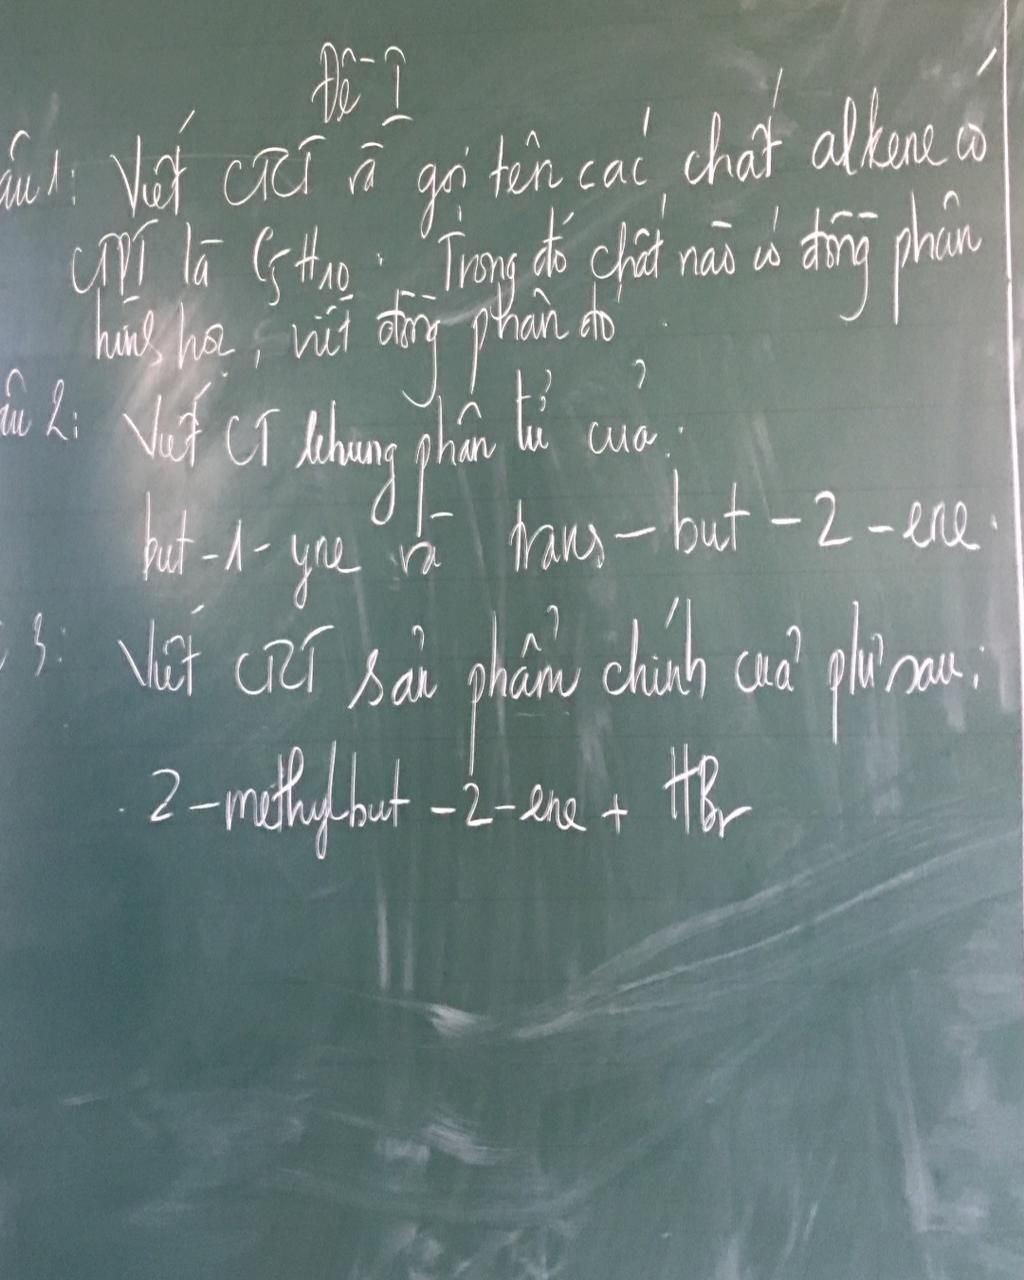 Đề I
Câu 1: Viết CTCT và gọi tên các chất alkene có
CTPT là C5H10. Trong đó chất nào có đồng phân
hình học, viết đồng phân đó.
Câu 2: Viết CT khung phân tử của:
but-1-yne và trans-but-2-ene.
3: Viết CTCT sản phẩm chính của phứ sau:
2-methylbut-2-ene + HBr